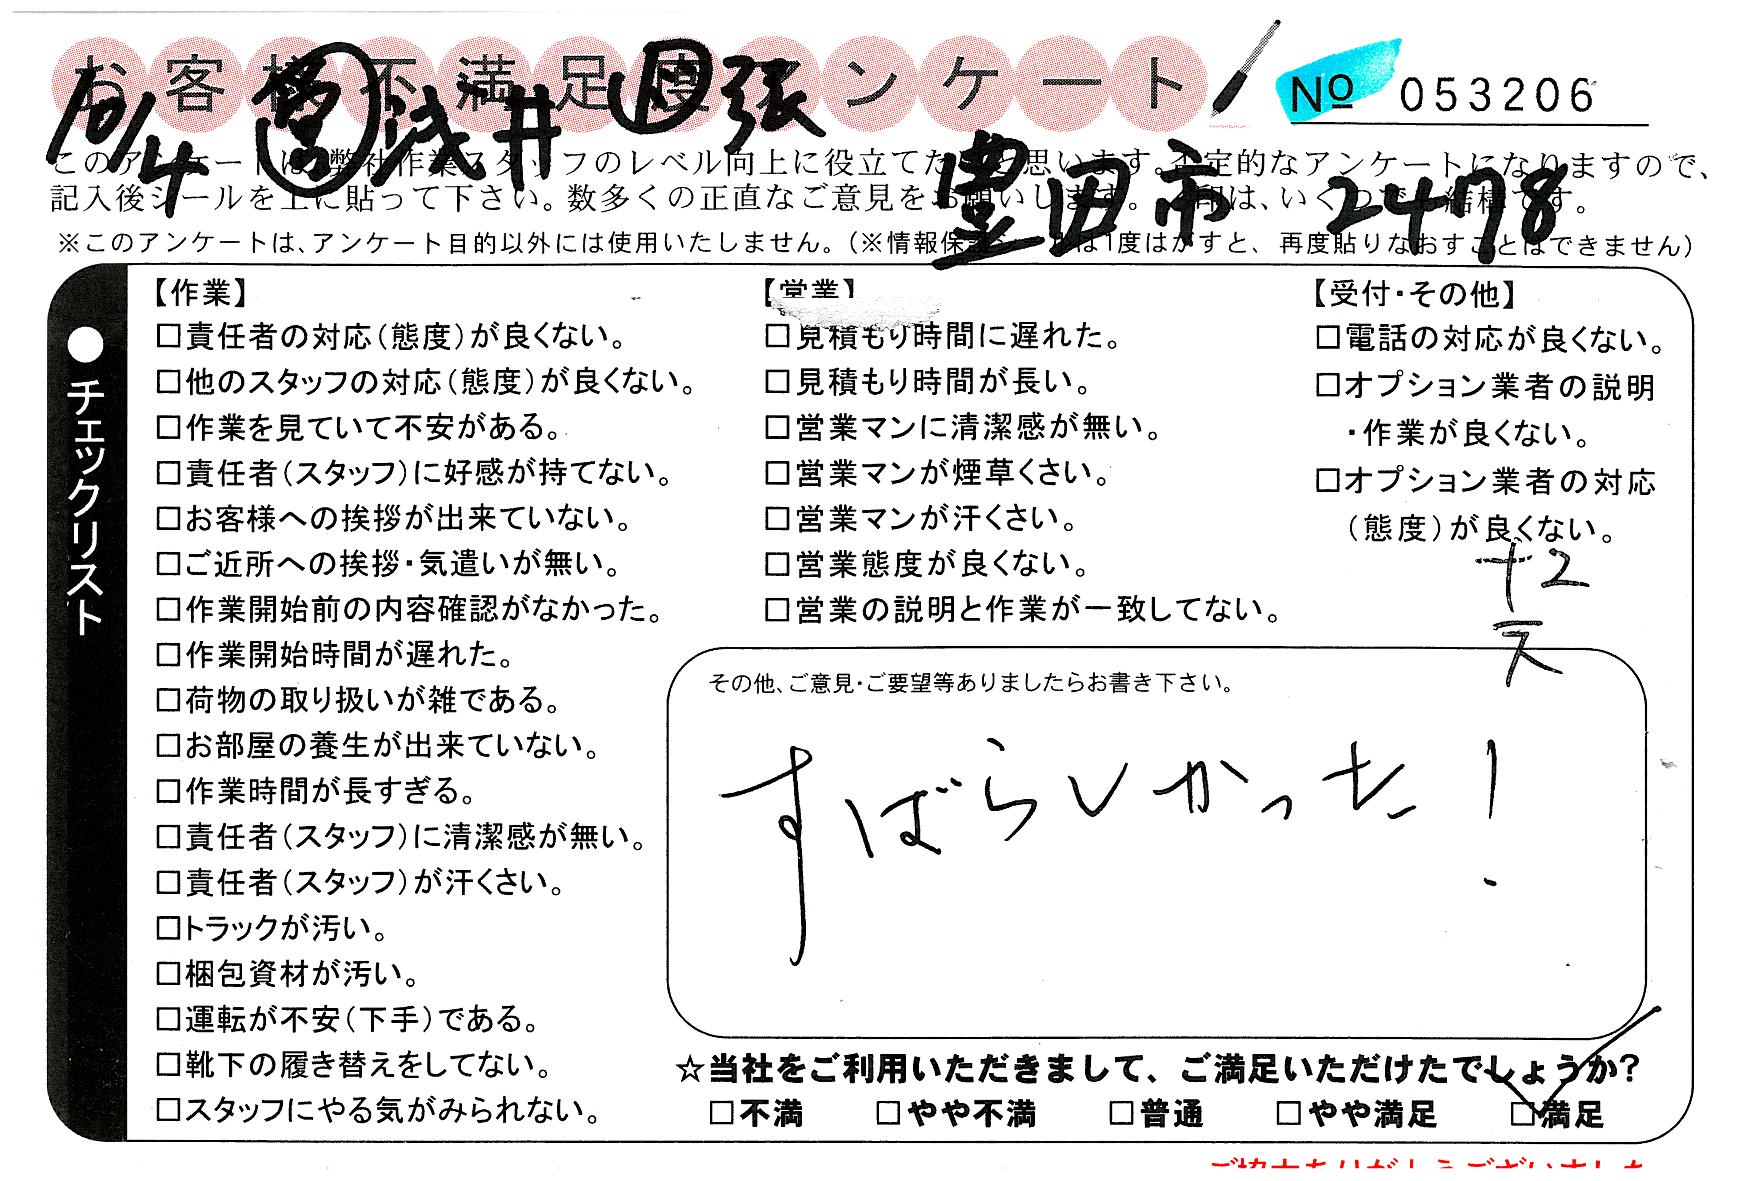 お客様不満足度アンケート No 053206
10/4 営 浅井 日 張
豊田市 2478
このアンケートは、弊社作業スタッフのレベル向上に役立てたいと思います。否定的なアンケートになりますので、
記入後シールを上に貼って下さい。数多くの正直なご意見をお願いします。
※このアンケートは、アンケート目的以外には使用いたしません。(※情報保護シールは1度はがすと、再度貼りなおすことはできません)
●チェックリスト
【作業】
□責任者の対応(態度)が良くない。
□他のスタッフの対応(態度)が良くない。
□作業を見ていて不安がある。
□責任者(スタッフ)に好感が持てない。
□お客様への挨拶が出来ていない。
□ご近所への挨拶・気遣いが無い。
□作業開始前の内容確認がなかった。
□作業開始時間が遅れた。
□荷物の取り扱いが雑である。
□お部屋の養生が出来ていない。
□作業時間が長すぎる。
□責任者(スタッフ)に清潔感が無い。
□責任者(スタッフ)が汗くさい。
□トラックが汚い。
□梱包資材が汚い。
□運転が不安(下手)である。
□靴下の履き替えをしてない。
□スタッフにやる気がみられない。
【営業】
□見積もり時間に遅れた。
□見積もり時間が長い。
□営業マンに清潔感が無い。
□営業マンが煙草くさい。
□営業マンが汗くさい。
□営業態度が良くない。
□営業の説明と作業が一致してない。
【受付・その他】
□電話の対応が良くない。
□オプション業者の説明
・作業が良くない。
□オプション業者の対応
(態度)が良くない。
+2
その他、ご意見・ご要望等ありましたらお書き下さい。
すばらしかった!
☆当社をご利用いただきまして、ご満足いただけたでしょうか?
□不満 □やや不満 □普通 □やや満足 □満足
ご協力ありがとうございました